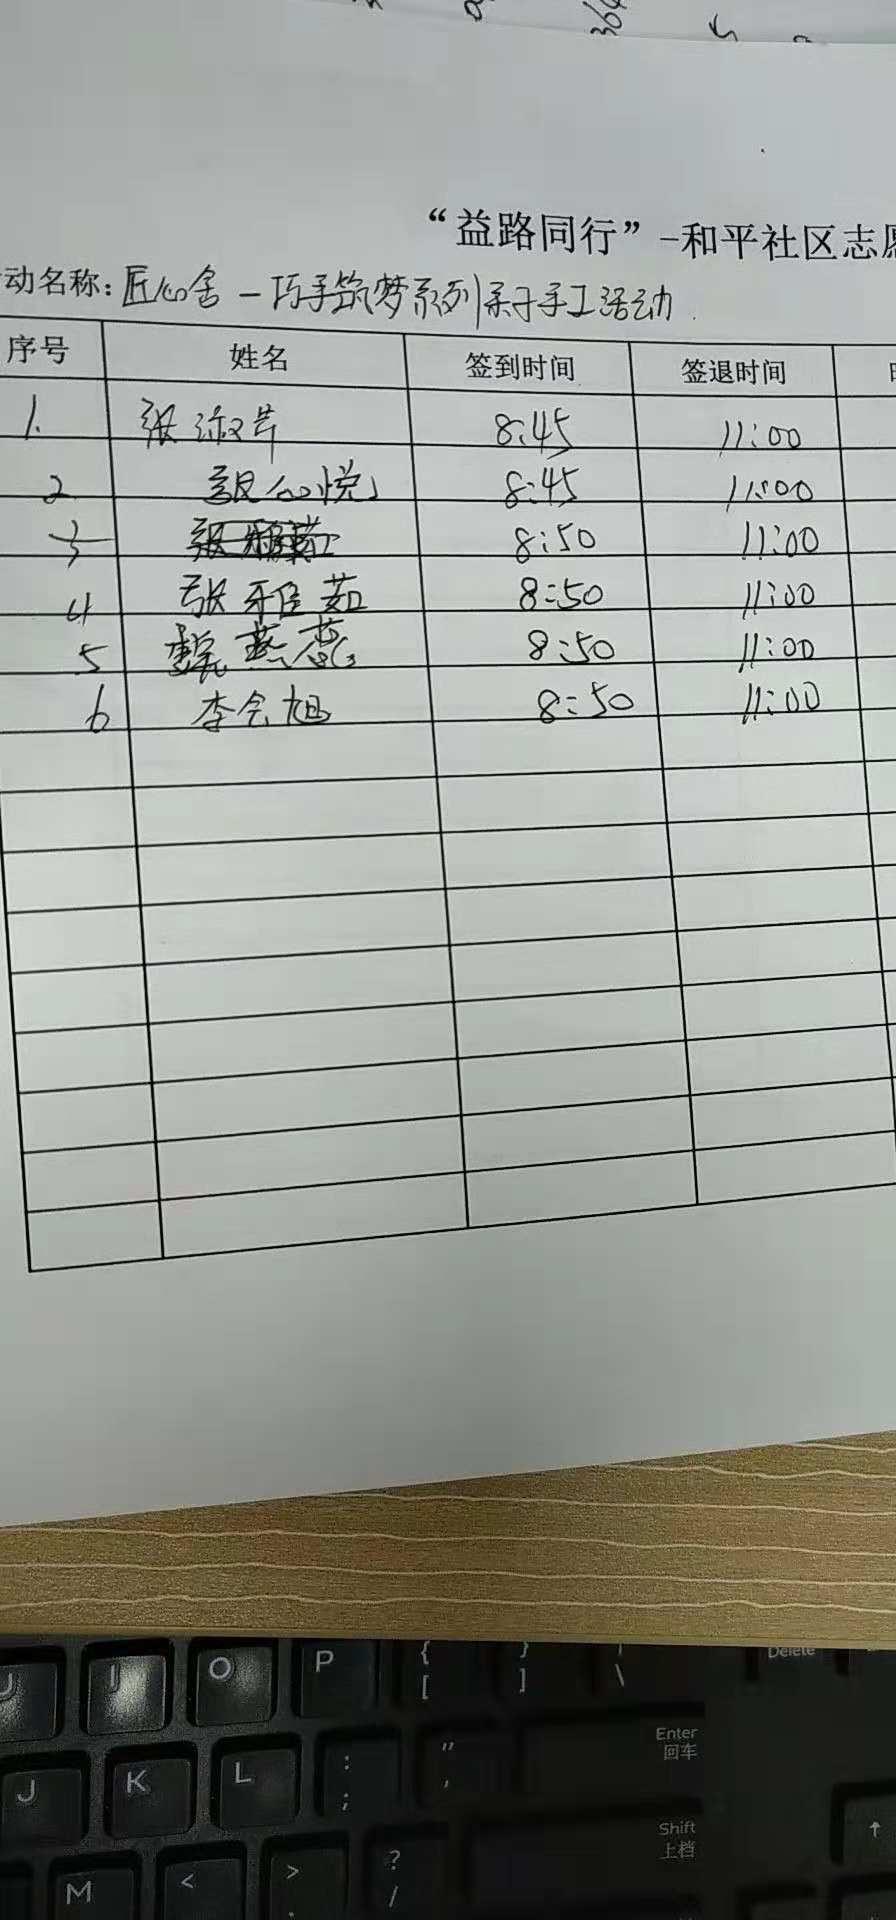 364
“益路同行”-和平社区志愿
动名称: 匠心舍-巧手筑梦系列亲子手工活动.
序号 姓名 签到时间 签退时间
1. 张淑芹 8:45 11:00
2 张心悦 8:45 11:00
3 张 8:50 11:00
4 张雅茹 8:50 11:00
5 燕蕊 8:50 11:00
6 李会旭 8:50 11:00
J I O P { [ } ] | \ Delete
J K L : ; " ' Enter 回车
M < > . ? / Shift 上档 ↑